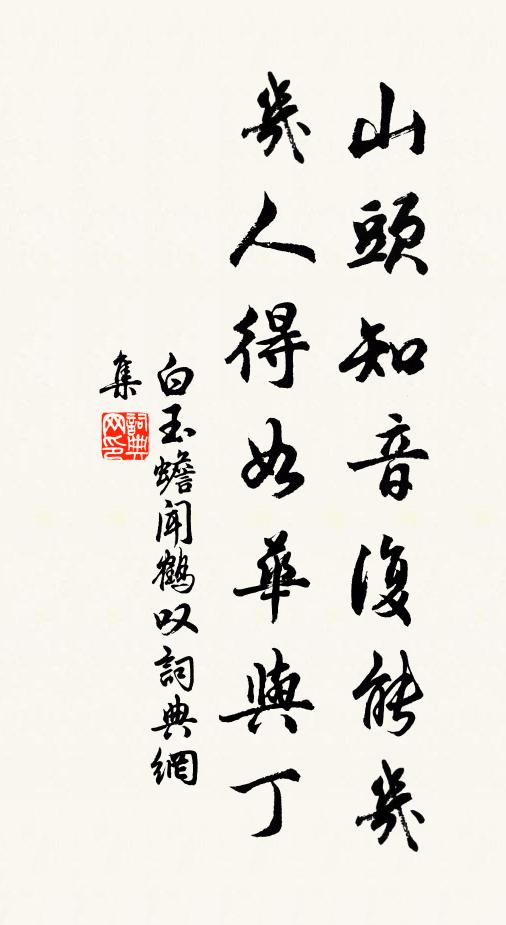 山頭知音復能幾
幾人得如華與丁
白玉蟾聞鶴叹詞典網
集
詞典
网印